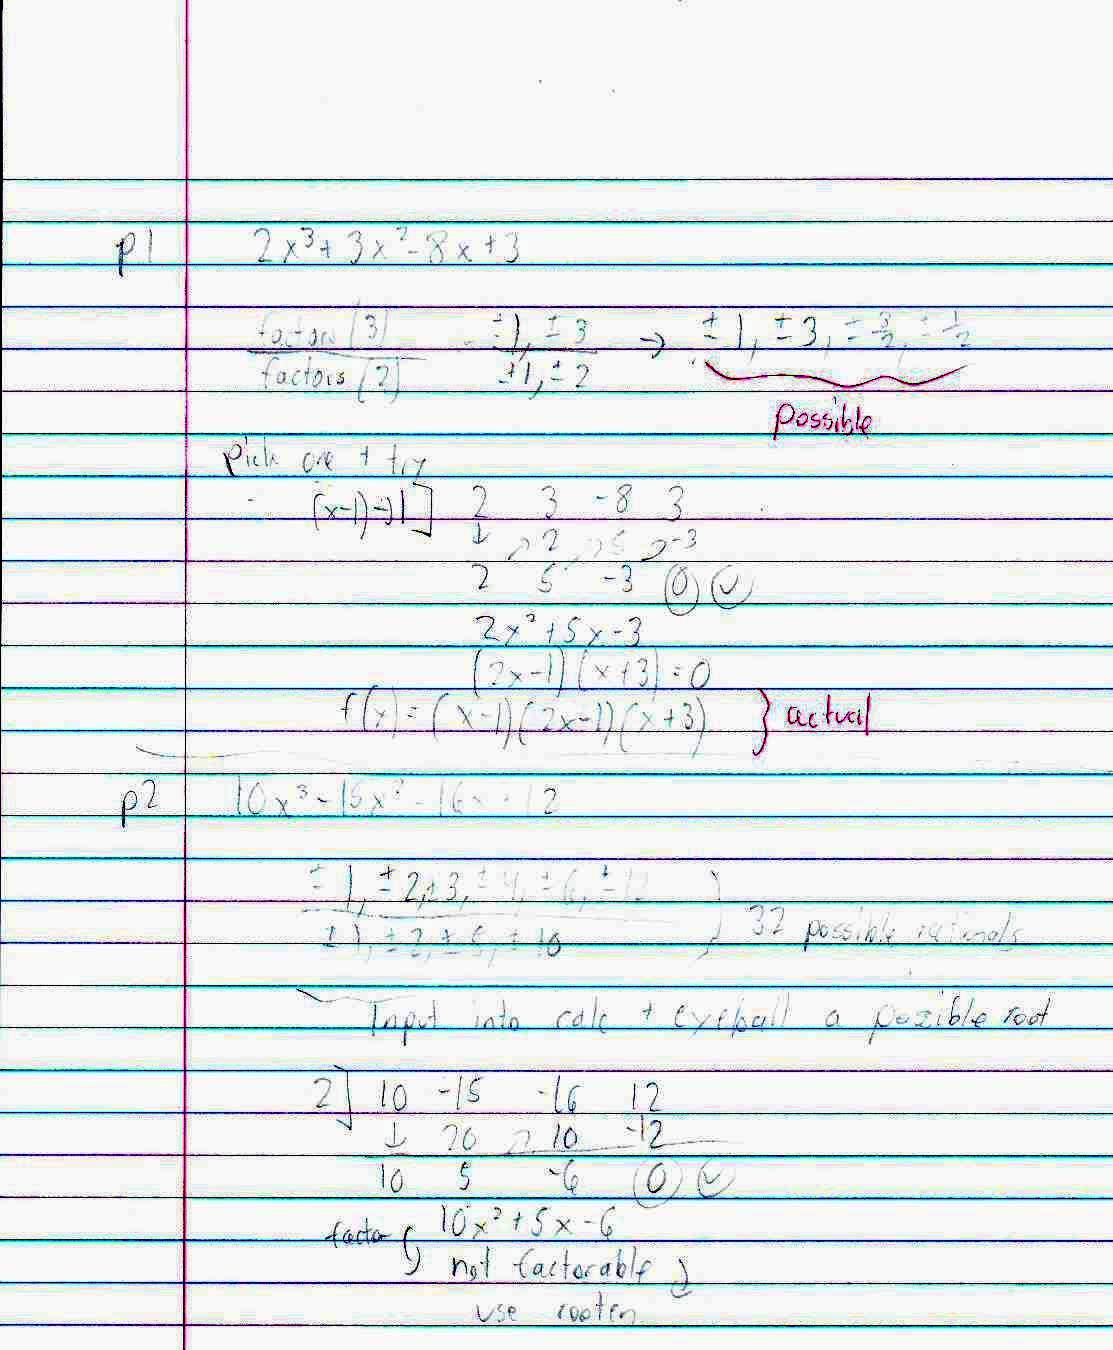 p1 2x³+3x²-8x+3
factors(3) ±1, ±3 → ±1, ±3, ±3/2, ±1/2
factors(2) ±1, ±2
possible
Pick one + try
(x-1)→1] 2 3 -8 3
↓ 2 5 -3
2 5 -3 0 ✓
2x²+5x-3
(2x-1)(x+3)=0
f(x)=(x-1)(2x-1)(x+3) } actual
p2 10x³-15x²-16x+12
±1, ±2, ±3, ±4, ±6, ±12
±1, ±2, ±5, ±10
) 32 possible rationals
Input into calc + eyeball a posible root
2] 10 -15 -16 12
↓ 20 10 -12
10 5 -6 0 ✓
factor 10x²+5x-6
not factorable
use